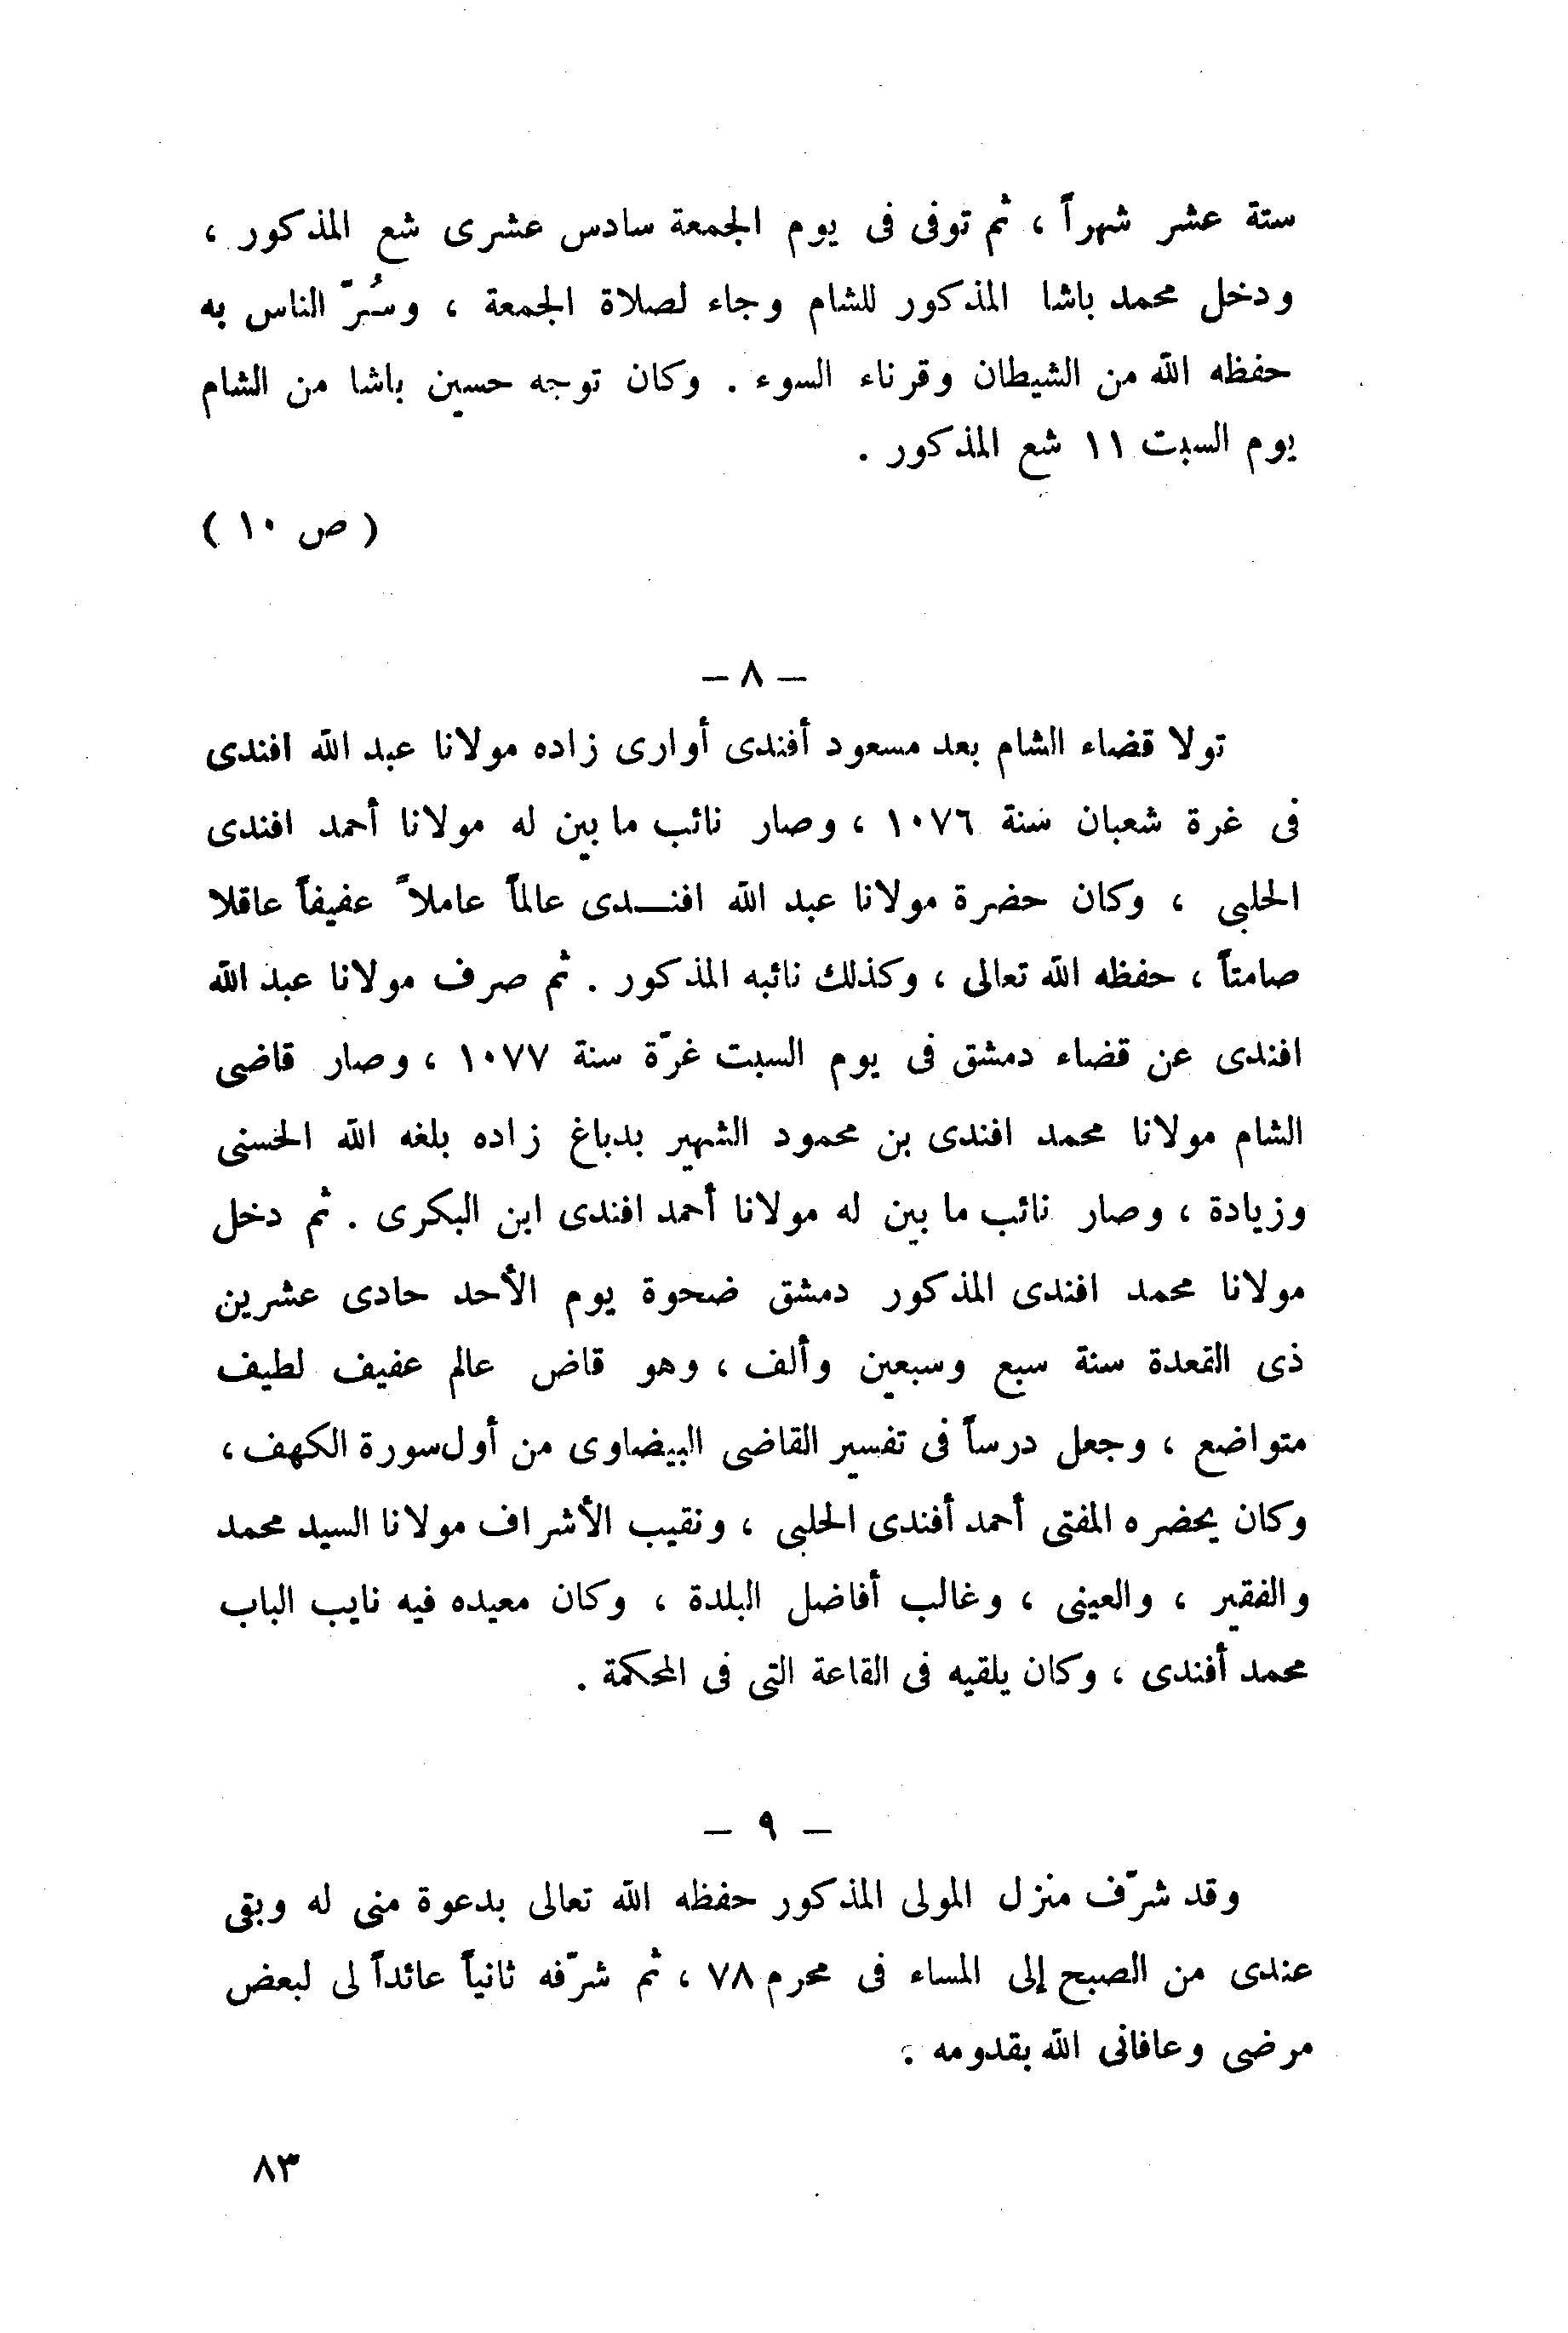 ستة عشر شهراً ، ثم توفى فى يوم الجمعة سادس عشرى شع المذكور ،
ودخل محمد باشا المذكور للشام وجاء لصلاة الجمعة ، وسُرّ الناس به
حفظه الله من الشيطان وقرناء السوء . وكان توجه حسين باشا من الشام
يوم السبت ١١ شع المذكور .
( ص ١٠ )
– ٨ –
تولا قضاء الشام بعد مسعود أفندى أوارى زاده مولانا عبد الله افندى
فى غرة شعبان سنة ١٠٧٦ ، وصار نائب ما بين له مولانا أحمد افندى
الحلبى ، وكان حضرة مولانا عبد الله افنـــدى عالماً عاملاً عفيفاً عاقلا
صامتاً ، حفظه الله تعالى ، وكذلك نائبه المذكور . ثم صرف مولانا عبد الله
افندى عن قضاء دمشق فى يوم السبت غرّة سنة ١٠٧٧ ، وصار قاضى
الشام مولانا محمد افندى بن محمود الشهير بدباغ زاده بلغه الله الحسنى
وزيادة ، وصار نائب ما بين له مولانا أحمد افندى ابن البكرى . ثم دخل
مولانا محمد افندى المذكور دمشق ضحوة يوم الأحد حادى عشرين
ذى القعدة سنة سبع وسبعين وألف ، وهو قاض عالم عفيف لطيف
متواضع ، وجعل درساً فى تفسير القاضى البيضاوى من أول سورة الكهف ،
وكان يحضره المفتى أحمد أفندى الحلبى ، ونقيب الأشراف مولانا السيد محمد
والفقير ، والعينى ، وغالب أفاضل البلدة ، وكان معيده فيه نايب الباب
محمد أفندى ، وكان يلقيه فى القاعة التى فى المحكمة .
– ٩ –
وقد شرّف منزل المولى المذكور حفظه الله تعالى بدعوة منى له وبقى
عندى من الصبح إلى المساء فى محرم ٧٨ ، ثم شرّفه ثانياً عائداً لى لبعض
مرضى وعافانى الله بقدومه .
٨٣